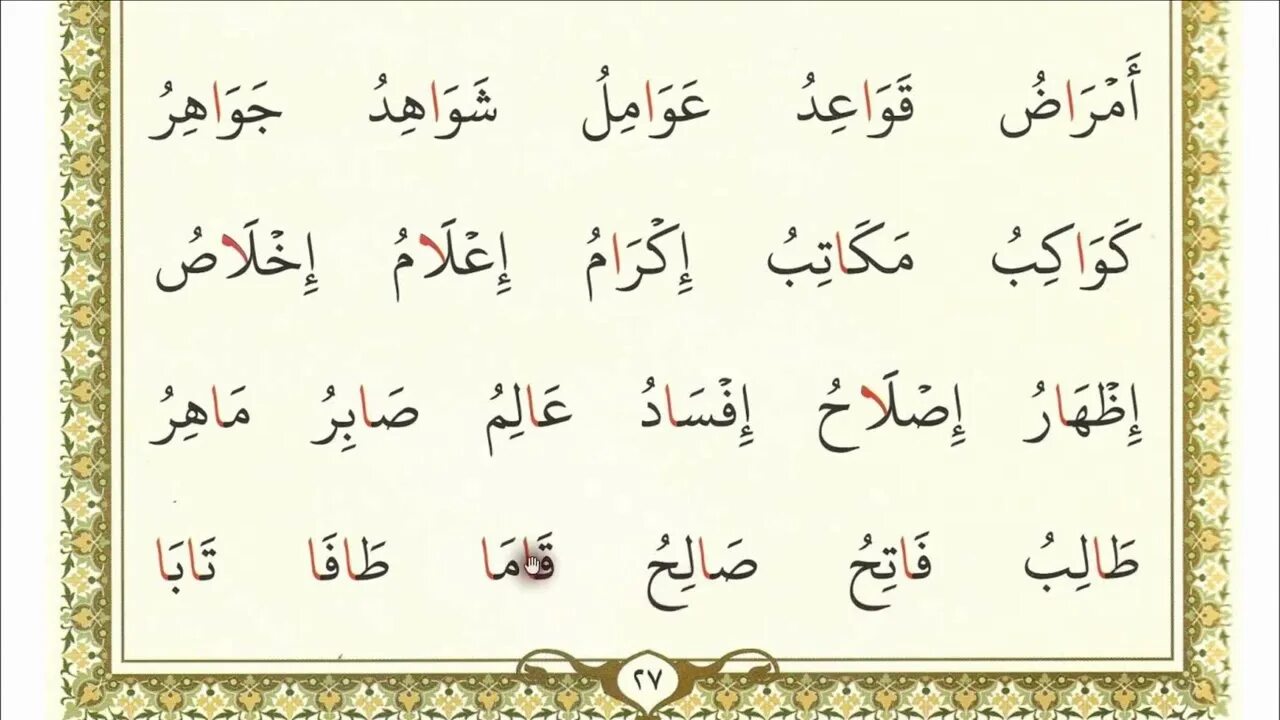 أَمْرَاضُ قَوَاعِدُ عَوَامِلُ شَوَاهِدُ جَوَاهِرُ
كَوَاكِبُ مَكَاتِبُ إِكْرَامُ إِعْلَامُ إِخْلَاصُ
إِظْهَارُ إِصْلَاحُ إِفْسَادُ عَالِمُ صَابِرُ مَاهِرُ
طَالِبُ فَاتِحُ صَالِحُ قَامَا طَافَا تَابَا
٢٧